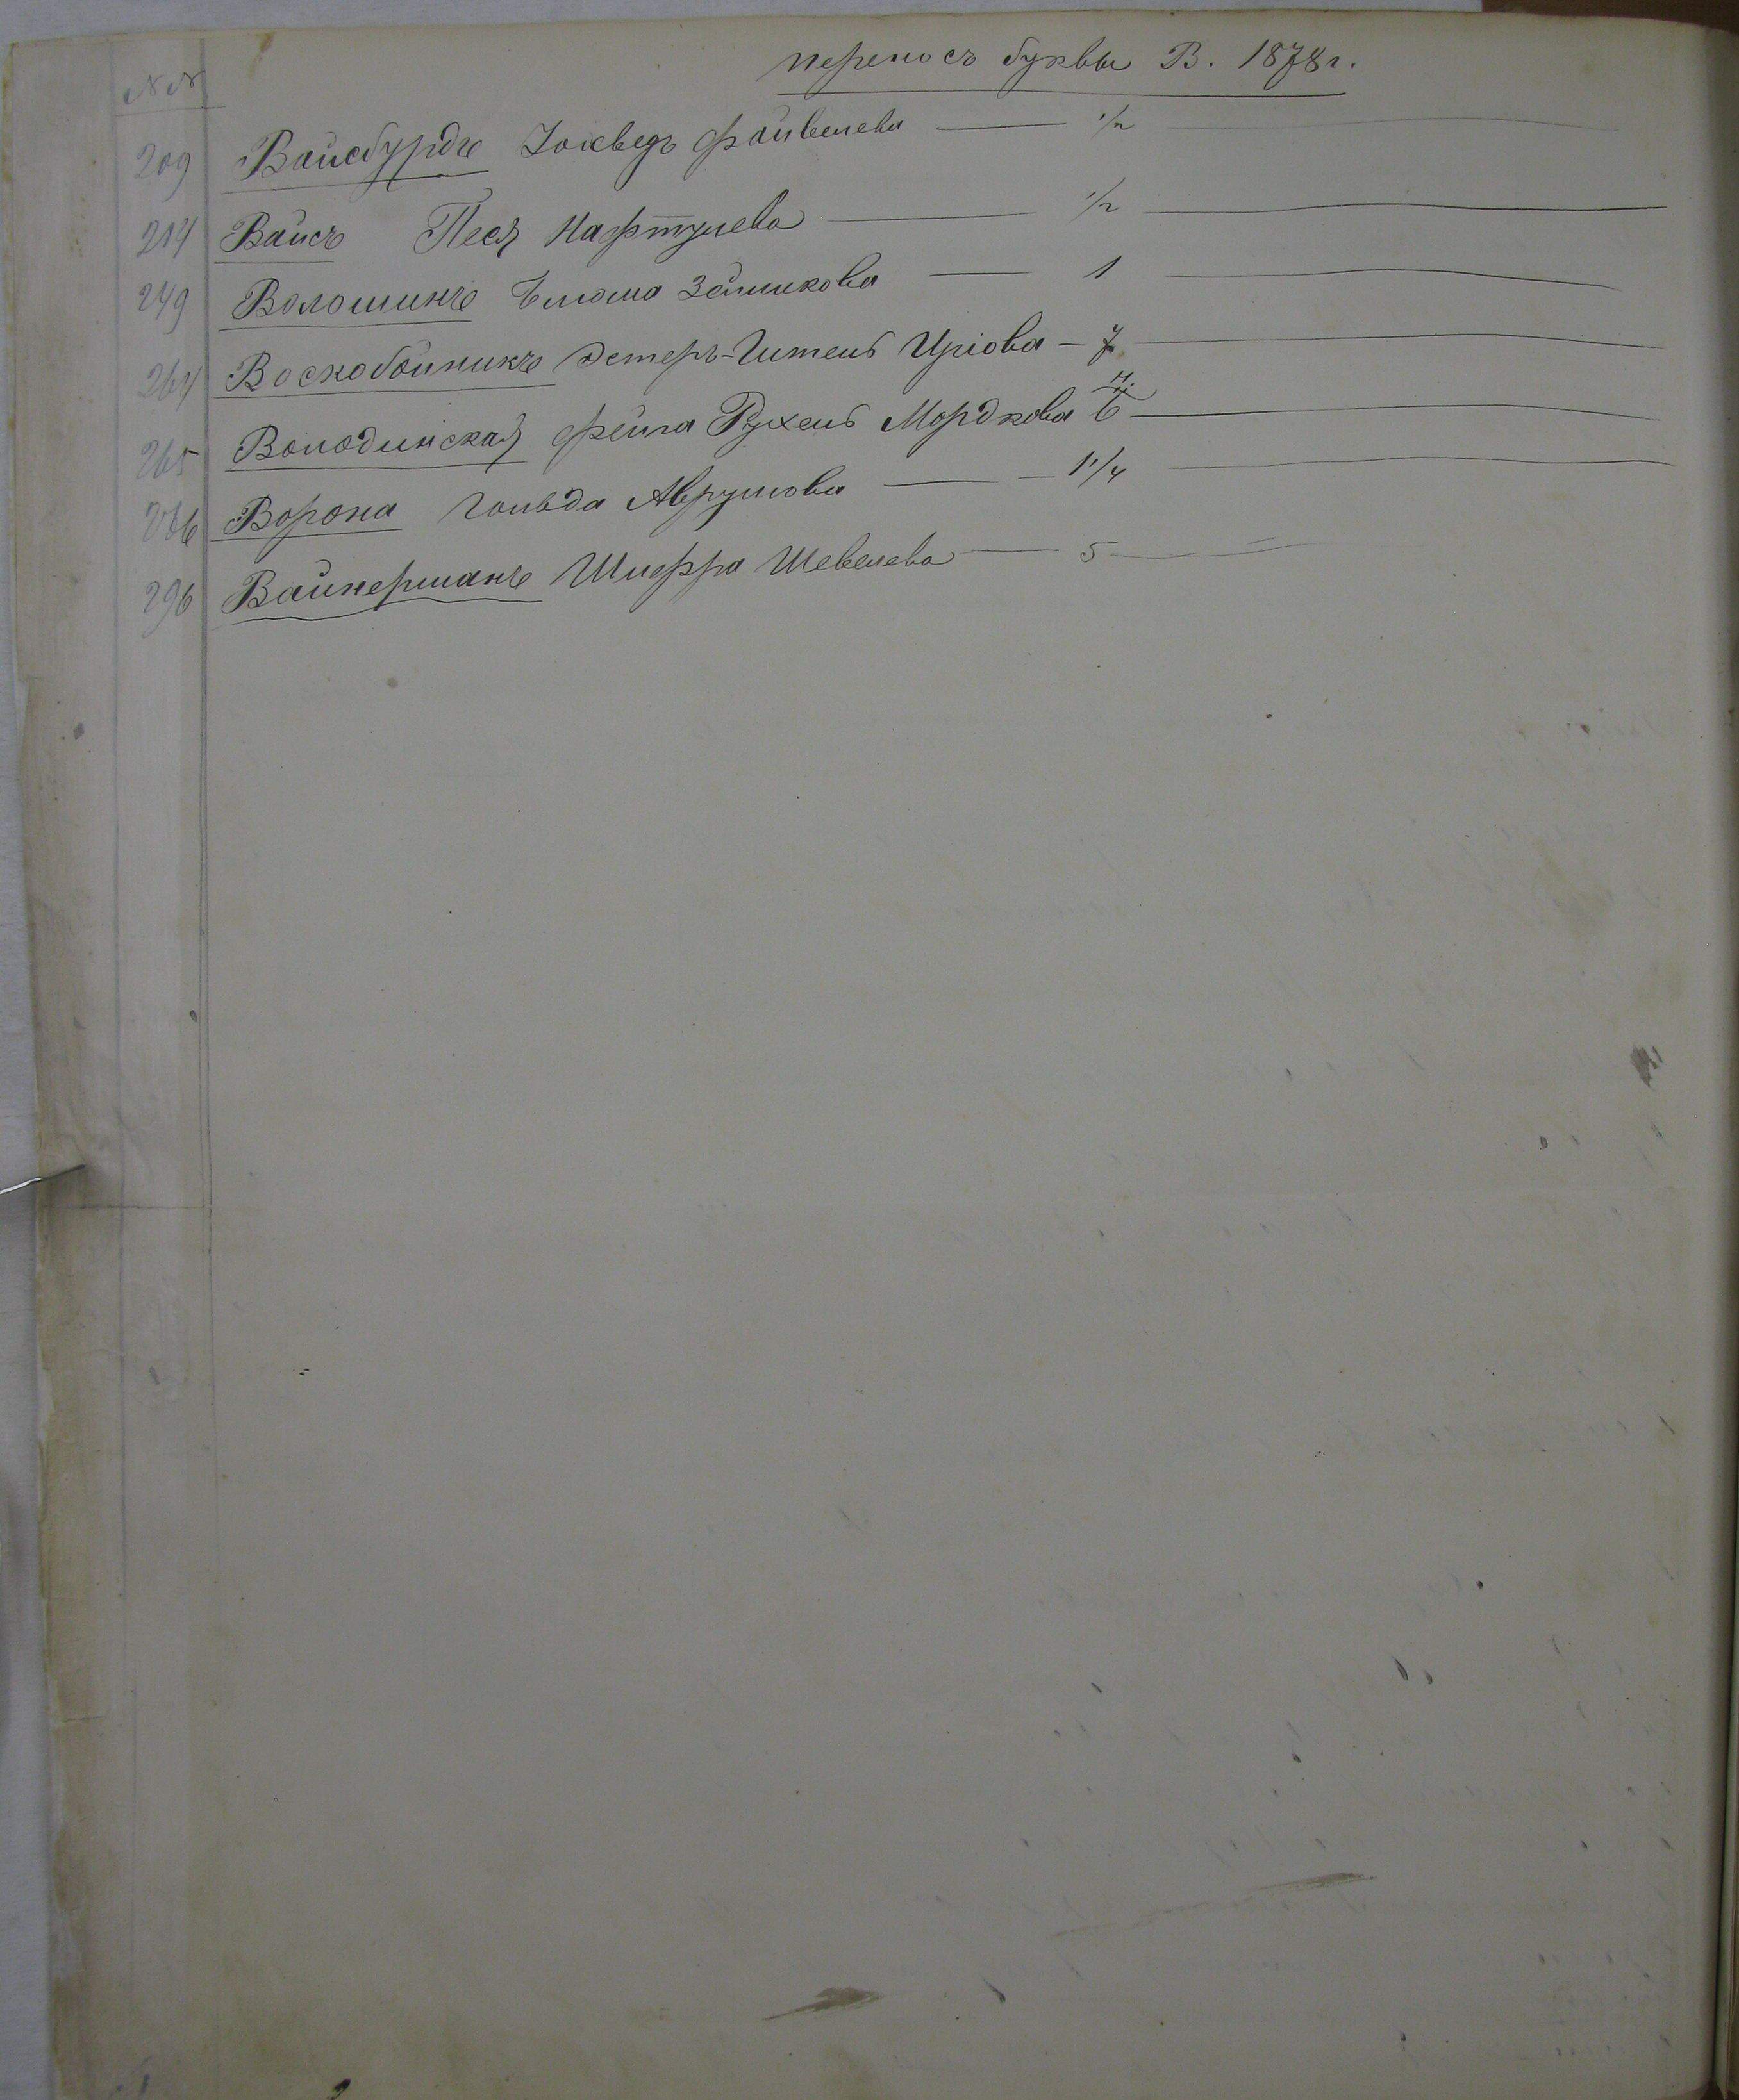 переносъ буквы В. 1878 г.
№№
209 Вайсбурдъ Іохведъ Файвелева — 1/2 —
214 Вайсъ Песя Нафтулева — 1/2 —
249 Волошинъ Блюма Зейликова — 1 —
264 Воскобойникъ Эстеръ-Гитель Уріова — 7 —
265 Володинская Фейга Рухель Мордкова 6 н. —
286 Ворона Гольда Аврумова — 1 1/4 —
296 Вайнерманъ Шифра Шевелева — 5 —